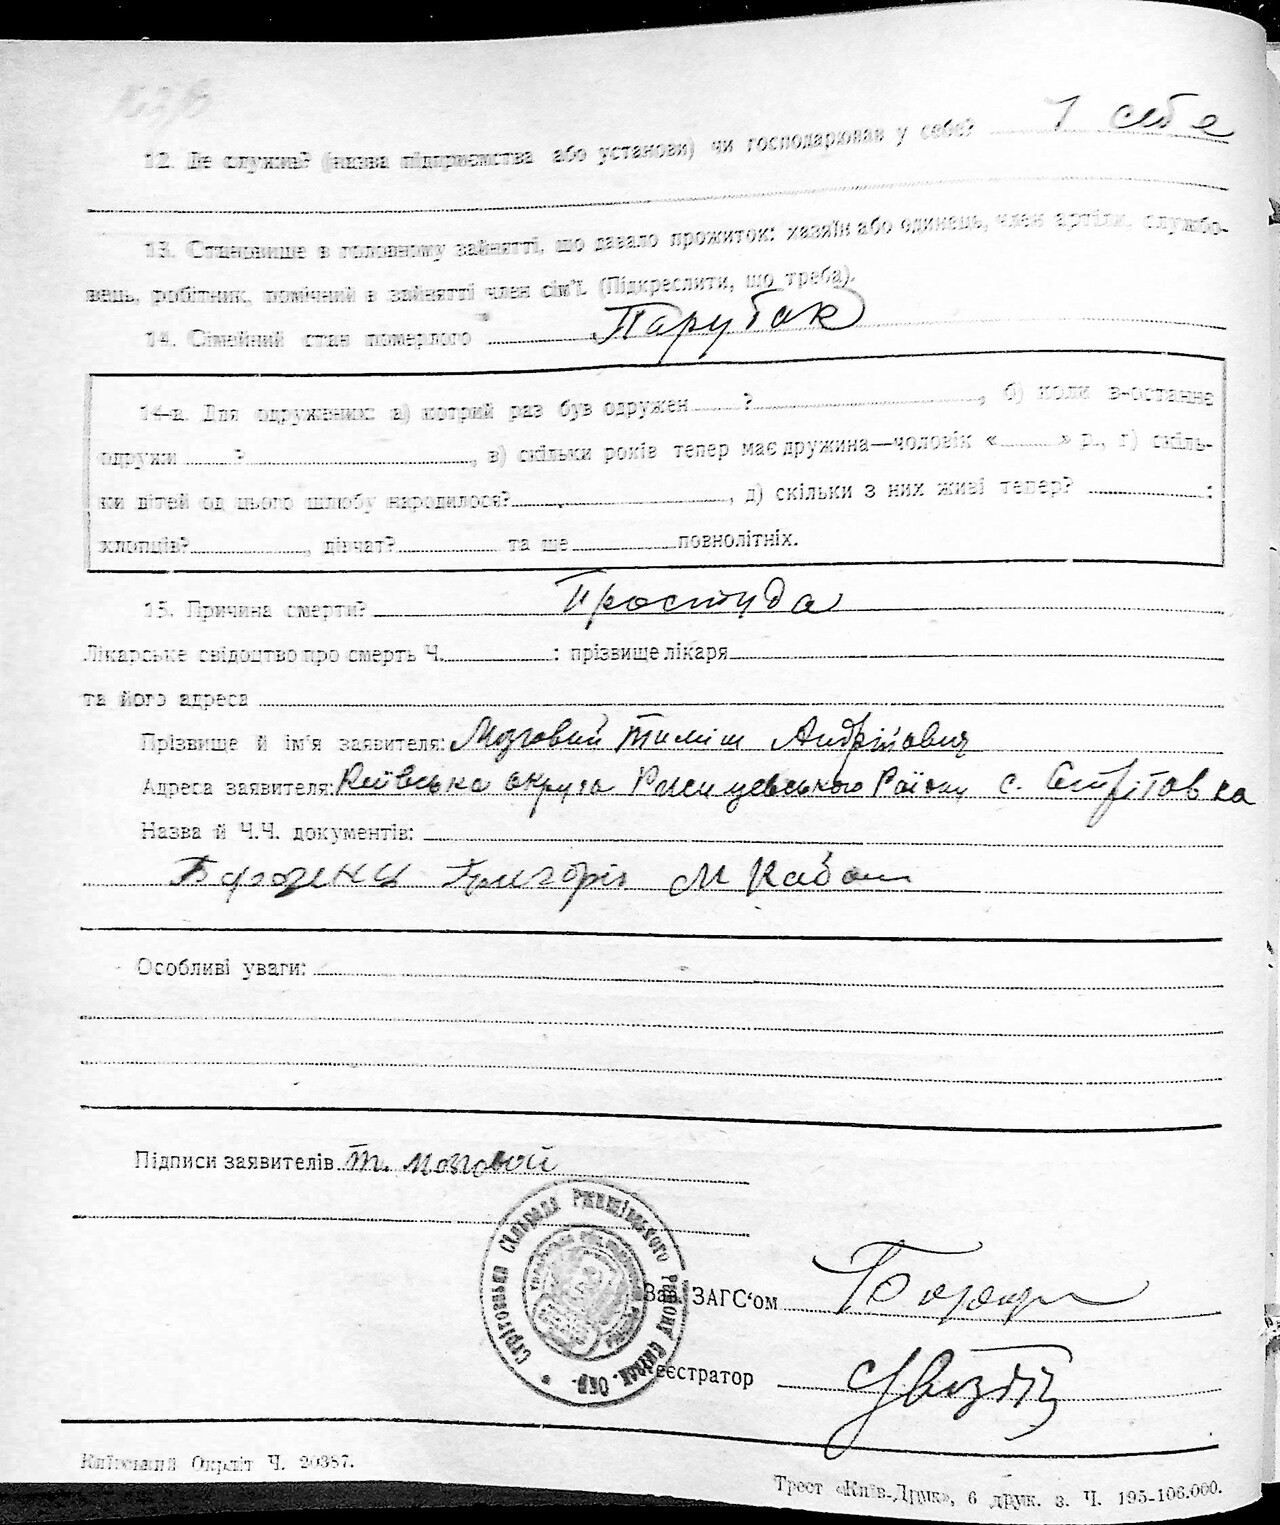 12. Де служив? (назва підприємства або установи) чи господарював у себе? У себе
13. Становище в головному зайнятті, що давало прожиток: хазяїн або одинець, член артіли, службо-
вець, робітник, помічний в зайнятті член сім'ї. (Підкреслити, що треба).
14. Сімейний стан померлого Парубок
14-а. Для одружених: а) котрий раз був одружен ? , б) коли в-останнє
одружи ? , в) скільки років тепер має дружина—чоловік « » р., г) скіль-
ки дітей од цього шлюбу народилося? , д) скільки з них живі тепер? :
хлопців? , дівчат? та ще повнолітніх.
15. Причина смерти? Простуда
Лікарське свідоцтво про смерть Ч. : прізвище лікаря
та його адреса
Прізвище й ім'я заявителя: Мозговий Тиміш Андрійович
Адреса заявителя: Київська округа Ржищевського Району с. Стрітовка
Назва й Ч.Ч. документів:
Григорій М
Особливі уваги:
Підписи заявителів Т. Мозговой
Стрітовська Сільрада Ржищівського Району Київ. Окр.
Зав. ЗАГС'ом
Реєстратор
Київський Окрліт Ч. 20387.
Трест «Київ-Друк», 6 друк. з. Ч. 195-106.000.